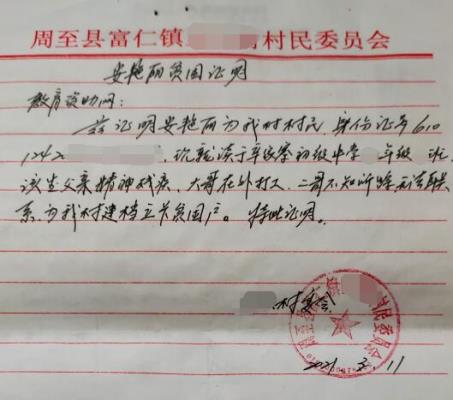 周至县富仁镇 村民委员会
安艳丽贫困证明
教育资助网:
兹证明安艳丽为我村村民 身份证号 610
124 2 . 现就读于辛家寨初级中学 年级 班,
该生父亲精神残疾, 大哥在外打工, 二哥不知所踪无法联
系, 为我村建档立卡贫困户。 特此证明。
村委会
2021. 3. 11